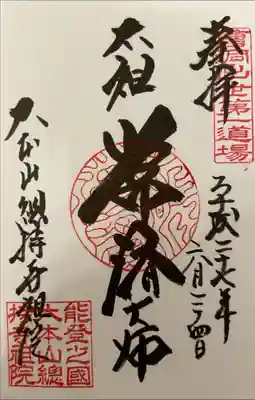 曹洞出世第一道場
奉拝
平成二十七年
六月二十四日
太祖
常済大師
大本山總持寺祖院
能登之國
大本山總
持寺祖院